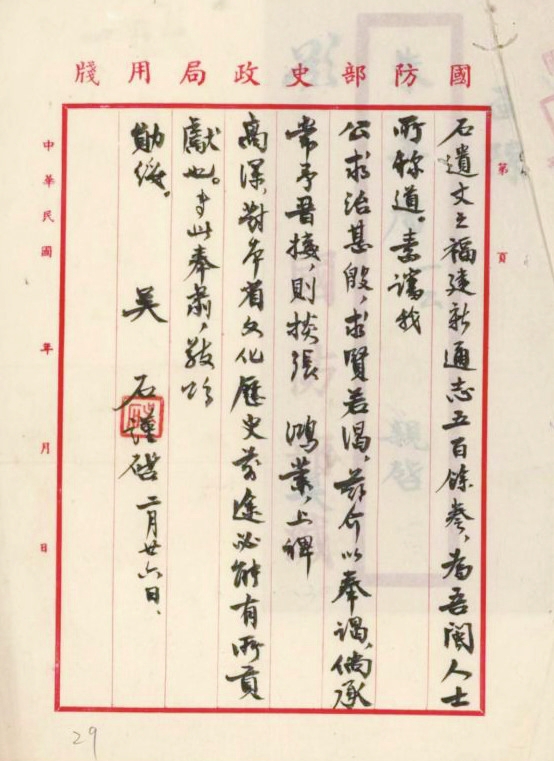 國防部史政局用牋
第 頁
石遺文之福建新通志五百餘卷、為吾閩人士
所稱道。素諗我
公求治甚殷、求賢若渴、茲介以奉謁、倘承
常予晉接、則掞張 鴻業、上裨
高深、對本省文化歷史前途必能有所貢
獻也。專此奉肅、敬頌
勛綏。
吳 石謹啓 二月廿六日、
中華民國 年 月 日
29